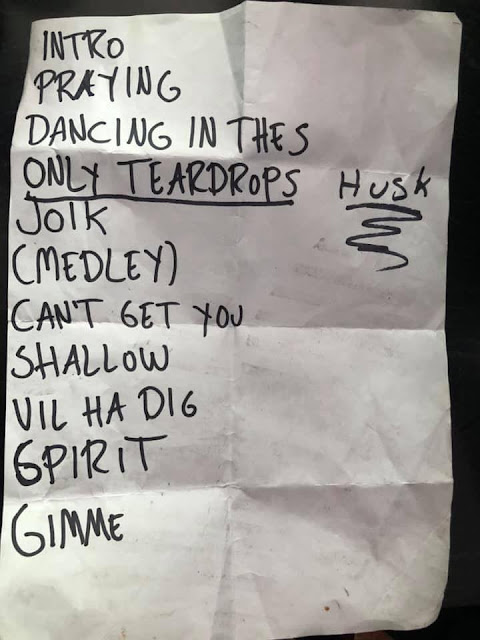 INTRO
PRAYING
DANCING IN THES
ONLY TEARDROPS
HUSK
JOIK
(MEDLEY)
CAN'T GET YOU
SHALLOW
VIL HA DIG
SPIRIT
GIMME